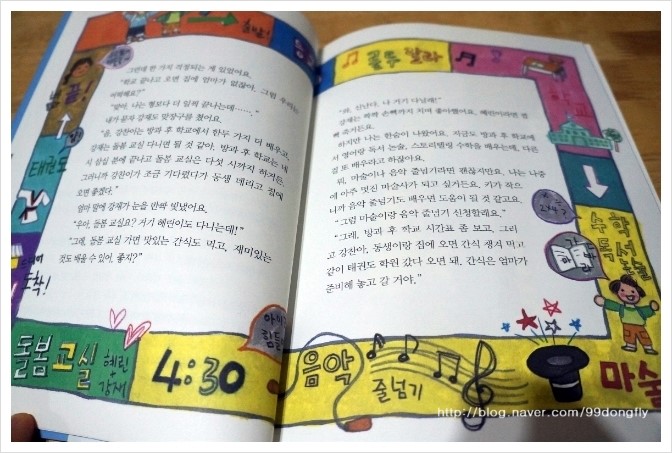 그런데 한 가지 걱정되는 게 있었어요.
"학교 끝나고 오면 집에 엄마가 없잖아. 그럼 우리는
어떡해요?"
"맞아, 나는 형보다 더 일찍 끝나는데……."
내가 묻자 강재도 맞장구를 쳤어요.
"응, 강찬이는 방과 후 학교에서 한두 가지 더 배우고,
강재는 돌봄 교실 다니면 될 것 같아. 방과 후 학교는 네
시 삼십 분에 끝나고 돌봄 교실은 다섯 시까지 하거든.
그러니까 강찬이가 조금 기다렸다가 동생 데리고 집에
오면 좋겠다."
엄마 말에 강재가 눈을 반짝 빛냈어요.
"우아, 돌봄 교실요? 거기 혜린이도 다니는데!"
"그래, 돌봄 교실 가면 맛있는 간식도 먹고, 재미있는
것도 배울 수 있어. 좋지?"
끝!
태권도
도착!
돌봄교실
혜린
+
강재
4:30
음악
줄넘기
랄라
강재는 짝짝 손뼉까지 치며 좋아했어요. 혜린이라면 껌
뻑 죽거든요.
하지만 나는 한숨이 나왔어요. 지금도 방과 후 학교에
서 영어랑 독서 논술, 스토리텔링 수학을 배우는데, 다른
걸 또 배우라고 하잖아요.
뭐, 마술이나 음악 줄넘기라면 괜찮지만요. 나는 나중
에 아주 멋진 마술사가 되고 싶거든요. 키가 작으
니까 음악 줄넘기도 배우면 도움이 될 것 같고요.
"그럼 마술이랑 음악 줄넘기 신청할래요."
"그래, 방과 후 학교 시간표 좀 보고. 그리
고 강찬아, 동생이랑 집에 오면 간식 챙겨 먹고
같이 태권도 학원 갔다 오면 돼. 간식은 엄마가
준비해 놓고 갈 거야."
마술
http://blog.naver.com/99dongfly